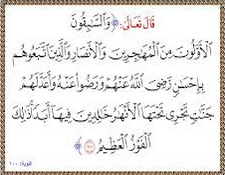 قَالَ تَعَالَىٰ: ﴿ وَالسَّابِقُونَ
الْأَوَّلُونَ مِنَ الْمُهَاجِرِينَ وَالْأَنصَارِ وَالَّذِينَ اتَّبَعُوهُم
بِإِحْسَانٍ رَّضِيَ اللَّهُ عَنْهُمْ وَرَضُوا عَنْهُ وَأَعَدَّ لَهُمْ
جَنَّاتٍ تَجْرِي تَحْتَهَا الْأَنْهَارُ خَالِدِينَ فِيهَا أَبَدًا ذَٰلِكَ
الْفَوْزُ الْعَظِيمُ ﴾
التوبة: ١٠٠